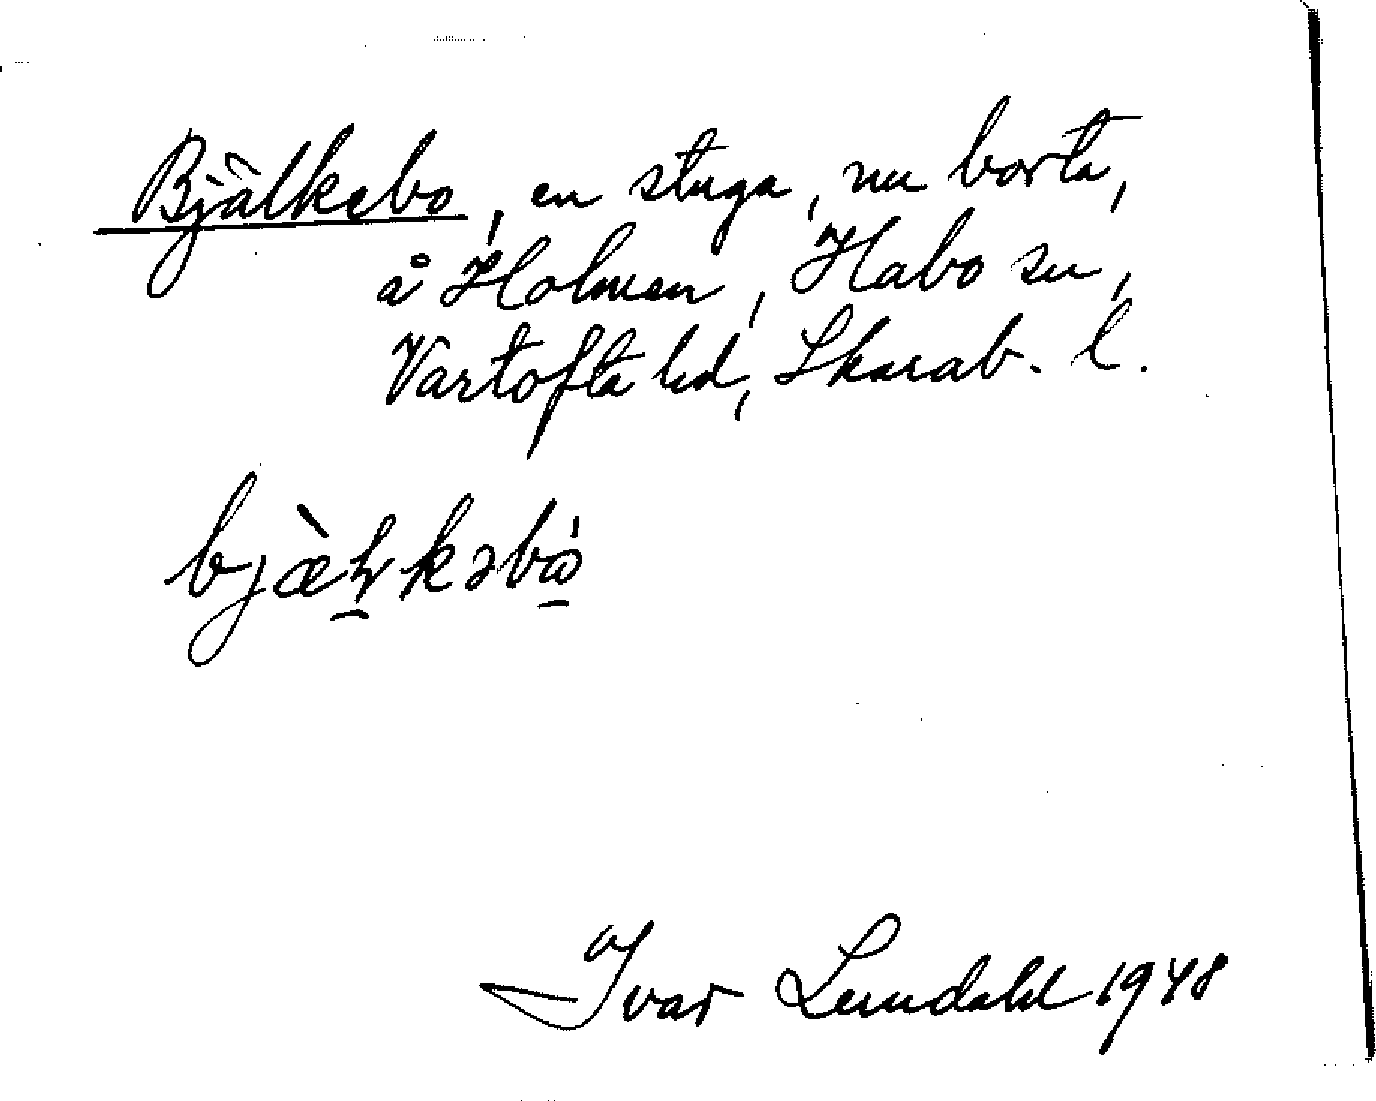 Bjälkebo, en stuga, nu borta,
å Holmen, Habo sn,
Vartofta hd, Skarab. l.
bjæ̀ḻkəbώ̱
Ivar Lundahl 1948